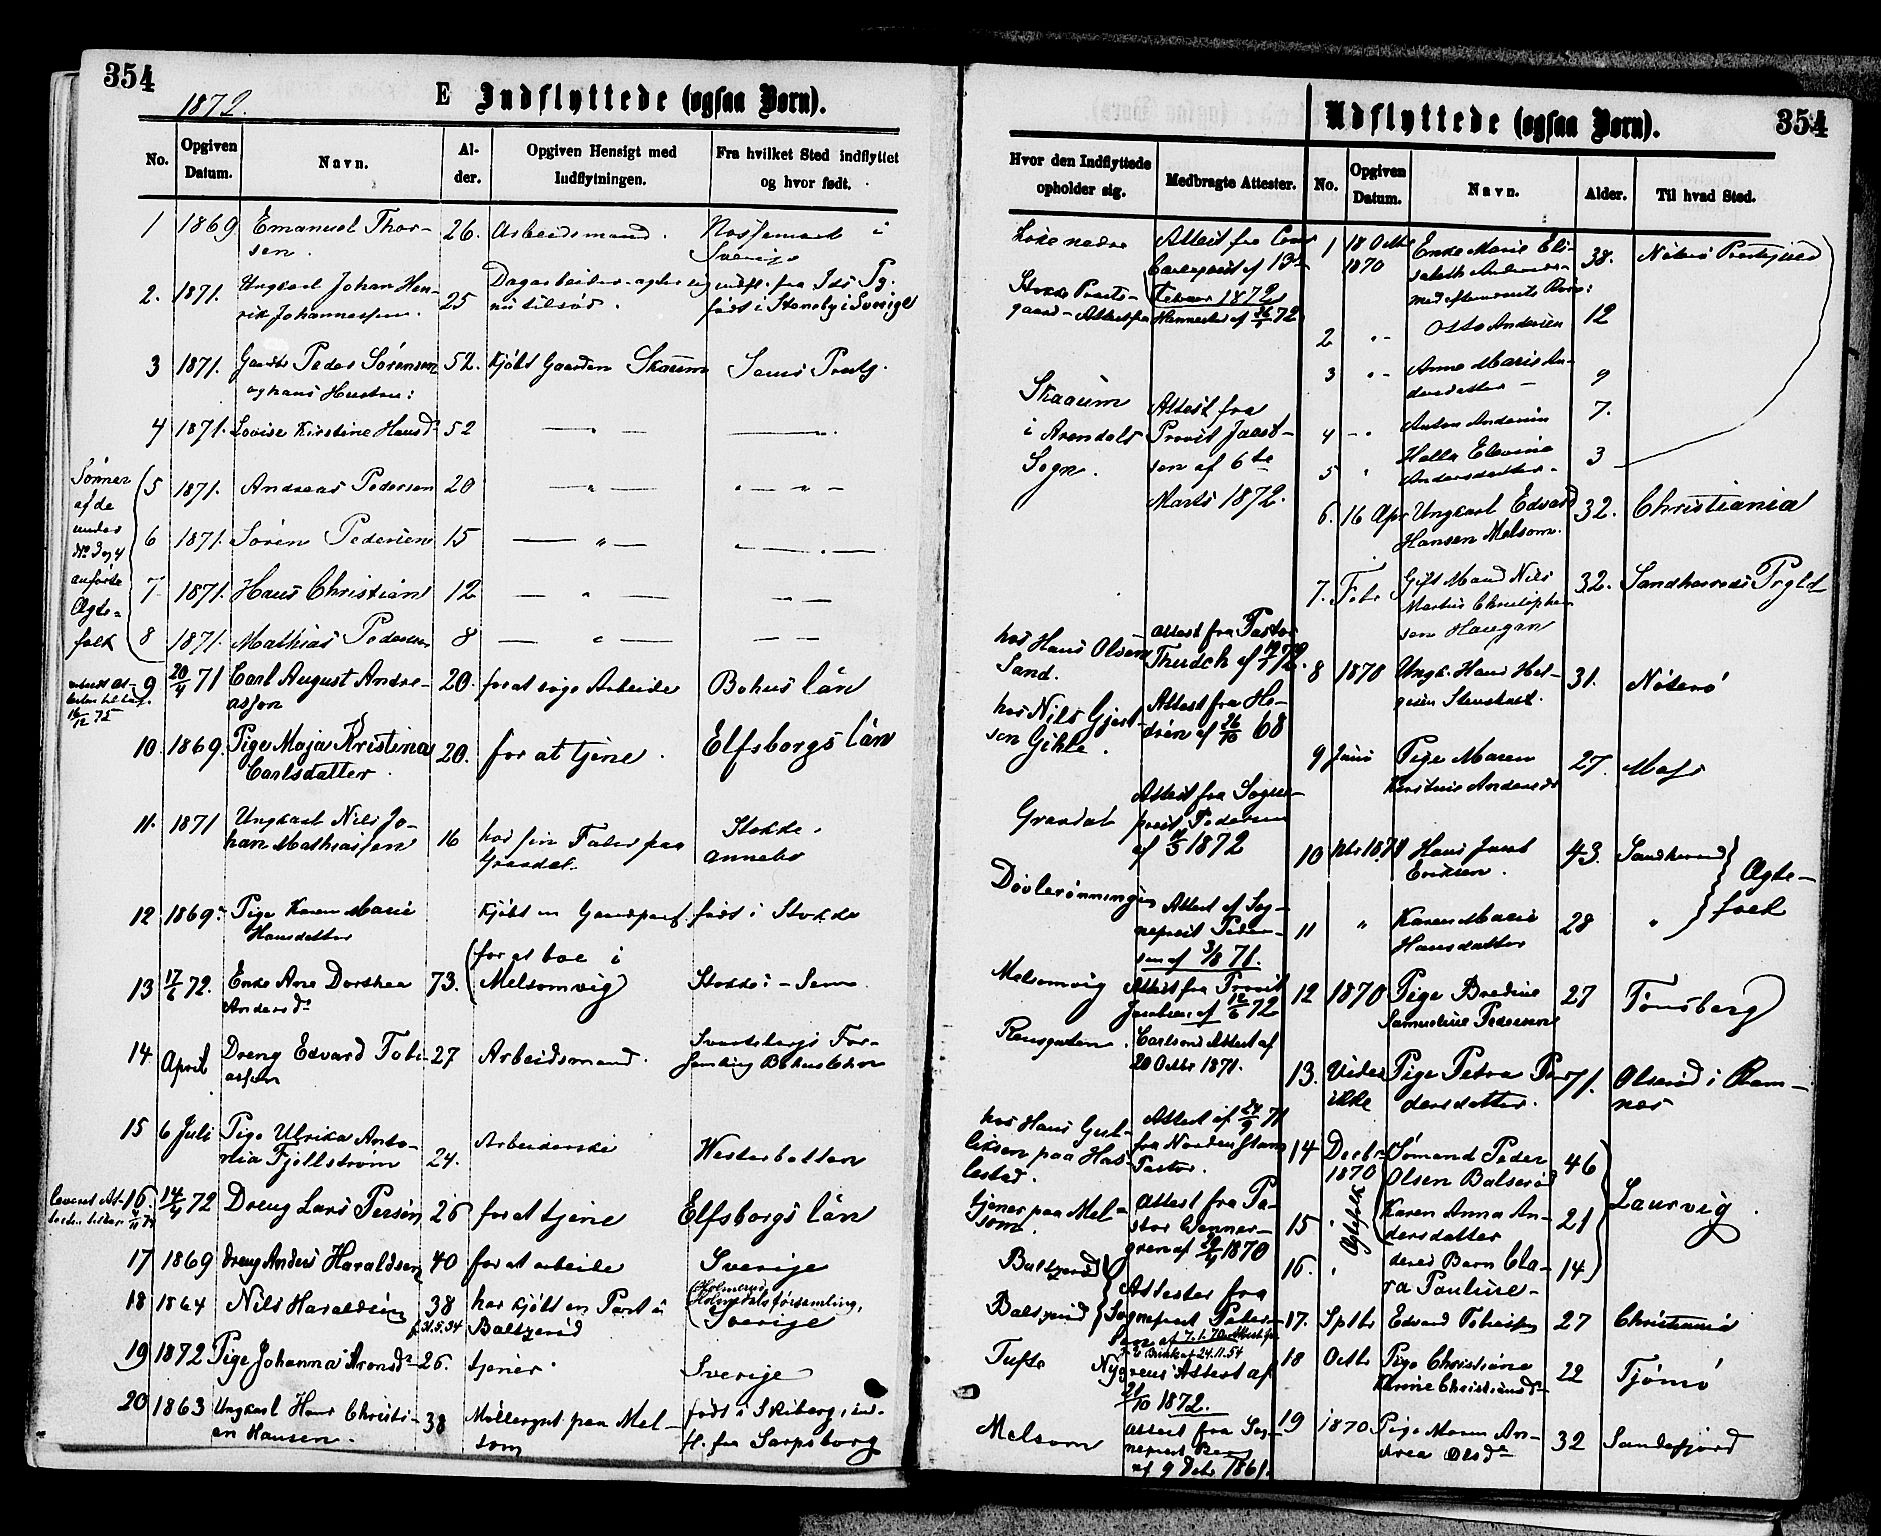 354
1872.
E Indflyttede (ogsaa Børn).
No.
Opgiven Datum.
Navn.
Alder.
Opgiven Hensigt med Indflytningen.
Fra hvilket Sted indflyttet og hvor født.
1 1869 Emanuel Thorsen. 26. Arbeidsmand. i Sverige
2. 1871. Ungkarl Johan Henrik Johannessen. 25 Dagarbeider - agter sig nu til søs. indfl. fra Ids Pg. født i Stenebyi Sverige
3 1871. Peder Sørensen og hans Hustru: 52. Kjøbt Gaarden Skaaum Sems Prstg.
4 1871. Lovise Kirstine Hansd 52 — " —
Sønner af de under No 3 og 4 anførte Ægtefolk
5 1871. Andreas Pedersen 20 — " —
6 1871. Søren Pedersen 15 — " —
7 1871. Hans Christian 12 — " —
8 1871. Mathias Pedersen 8 — " —
16/12 75
9 20/4 71 Carl August Andreasson 20. for at søge Arbeide Bohus län
10. 1869. Pige Maja Kristina Carlsdatter. 20. for at tjene. Elfsborgs län
11. 1871 Ungkarl Nils Johan Mathiassen 16 hos sin Fader paa Graadal. Stokke. Annebo
12 1869. Pige Karen Marie Hansdatter Kjøbt en Gaardpart født i Stokke
13 17/6 72. Enke Ane Dorthea Andersd 73. (for at boe i Melsomvig) Stokke - Sem
14 April Dreng Edvard Tobiassen 27 Arbeidsmand. Svarteborgs Forsamling Bohuslehn
15 6 Juli Pige Ulrika Antonia Fjellstrøm 24. Arbeiderske Westerbotten
16. 14/4 72 Dreng Lars Persson 26 for at tjene Elfsborgs län
17 1869 Dreng Anders Haraldsen 40 for at arbeide Sverige
18 1864 Nils Haraldsen 38 har kjøbt en Part i Baltzerød Holmedals församling, Sverige
f. 31.5.34
19 1872 Pige Johanna Aronsd 26. tjener. Sverige
20 1863 Ungkarl Hans Christian Hansen. 38 Møllergut paa Melsom født i Skiberg, indfl. fra Sarpsborg
Udflyttede (ogsaa Børn).
354
Hvor den Indflyttede opholder sig.
Medbragte Attester.
No.
Opgiven Datum.
Navn.
Alder.
Til hvad Sted.
Attest fra
af 13de
Februar 1872
Stokke Præstegaard - Attest fra af 26/1 72
Skaaum i Arendals Sogn.
Attest fra Provst
af 6te Marts 1872.
hos Hans Olsen Sand.
Attest fra Pastor
hos Nils
Attest fra Hedrén af 26/10 68
Graadal
Attest fra Sogneprest Pedersen af 1872
Attest af Sogneprest Pedersen af 3/8 71.
Melsomvig
Attest fra Provst Jacobsen af 12/6 72
Carlsons Attest af 20 Octbr 1871.
hos Hans
Attest af 24/4 71 fra Pastor.
tjener paa Melsom.
Attest fra Pastor Wennergren af 1870
Baltzerød
Baltzerød
Attester fra Sogneprest Pedersen af 7.1.70
24.11.54
Tufte
Nygrens Attest af 21/10 1872.
Melsom
Attest fra Sogneprest
af 9 Octbr 1861.
1 18 Octbr 1870 Enke Marie Elisabeth Andersd. med efternævnte Børn: 38. Nøterø Prestegjeld
2 " Otto Andersen 12
3 " Anne Marie Andersdatter 9
4 " Anton Andersen 7.
5 " Helle Elevine Andersdatter. 3
6. 16 Apr Ungkarl Edvard Hansen Melsom. 32. Christiania
7. Febr Gift Mand Nils Martin Christophersen Haugen 32. Sandherreds Prgld
8 1870 Ungk. Hans 31. Nøterø
9 Juni Pige Maren Kirstine Andersd 27. Moss
10 1871 Hans Jacob Eriksen. 43. Sandherred
11 " Karen Marie Hansdatter 28 "
Ægtefolk
12 1870 Pige Bredine Samueline Pedersen 27 Tønsberg
13. Vides ikke Pige Petra Pedersdatter. 71. Olserød i Ramnes
14 Decbr 1870 Sømand Peder Olsen Balserød 46
15 " Karen Anna Andersdatter 21
Ægtefolk
16. " deres Barn Clara Pauline - 14
Laurvig.
17. Sptbr Edvard Tobiassen 27 Christiania
18 Octbr Pige Christiane Karine Christiansd 22 Tjømø
19 1870 Pige Maren Andrea Olsd 32 Sandefjord